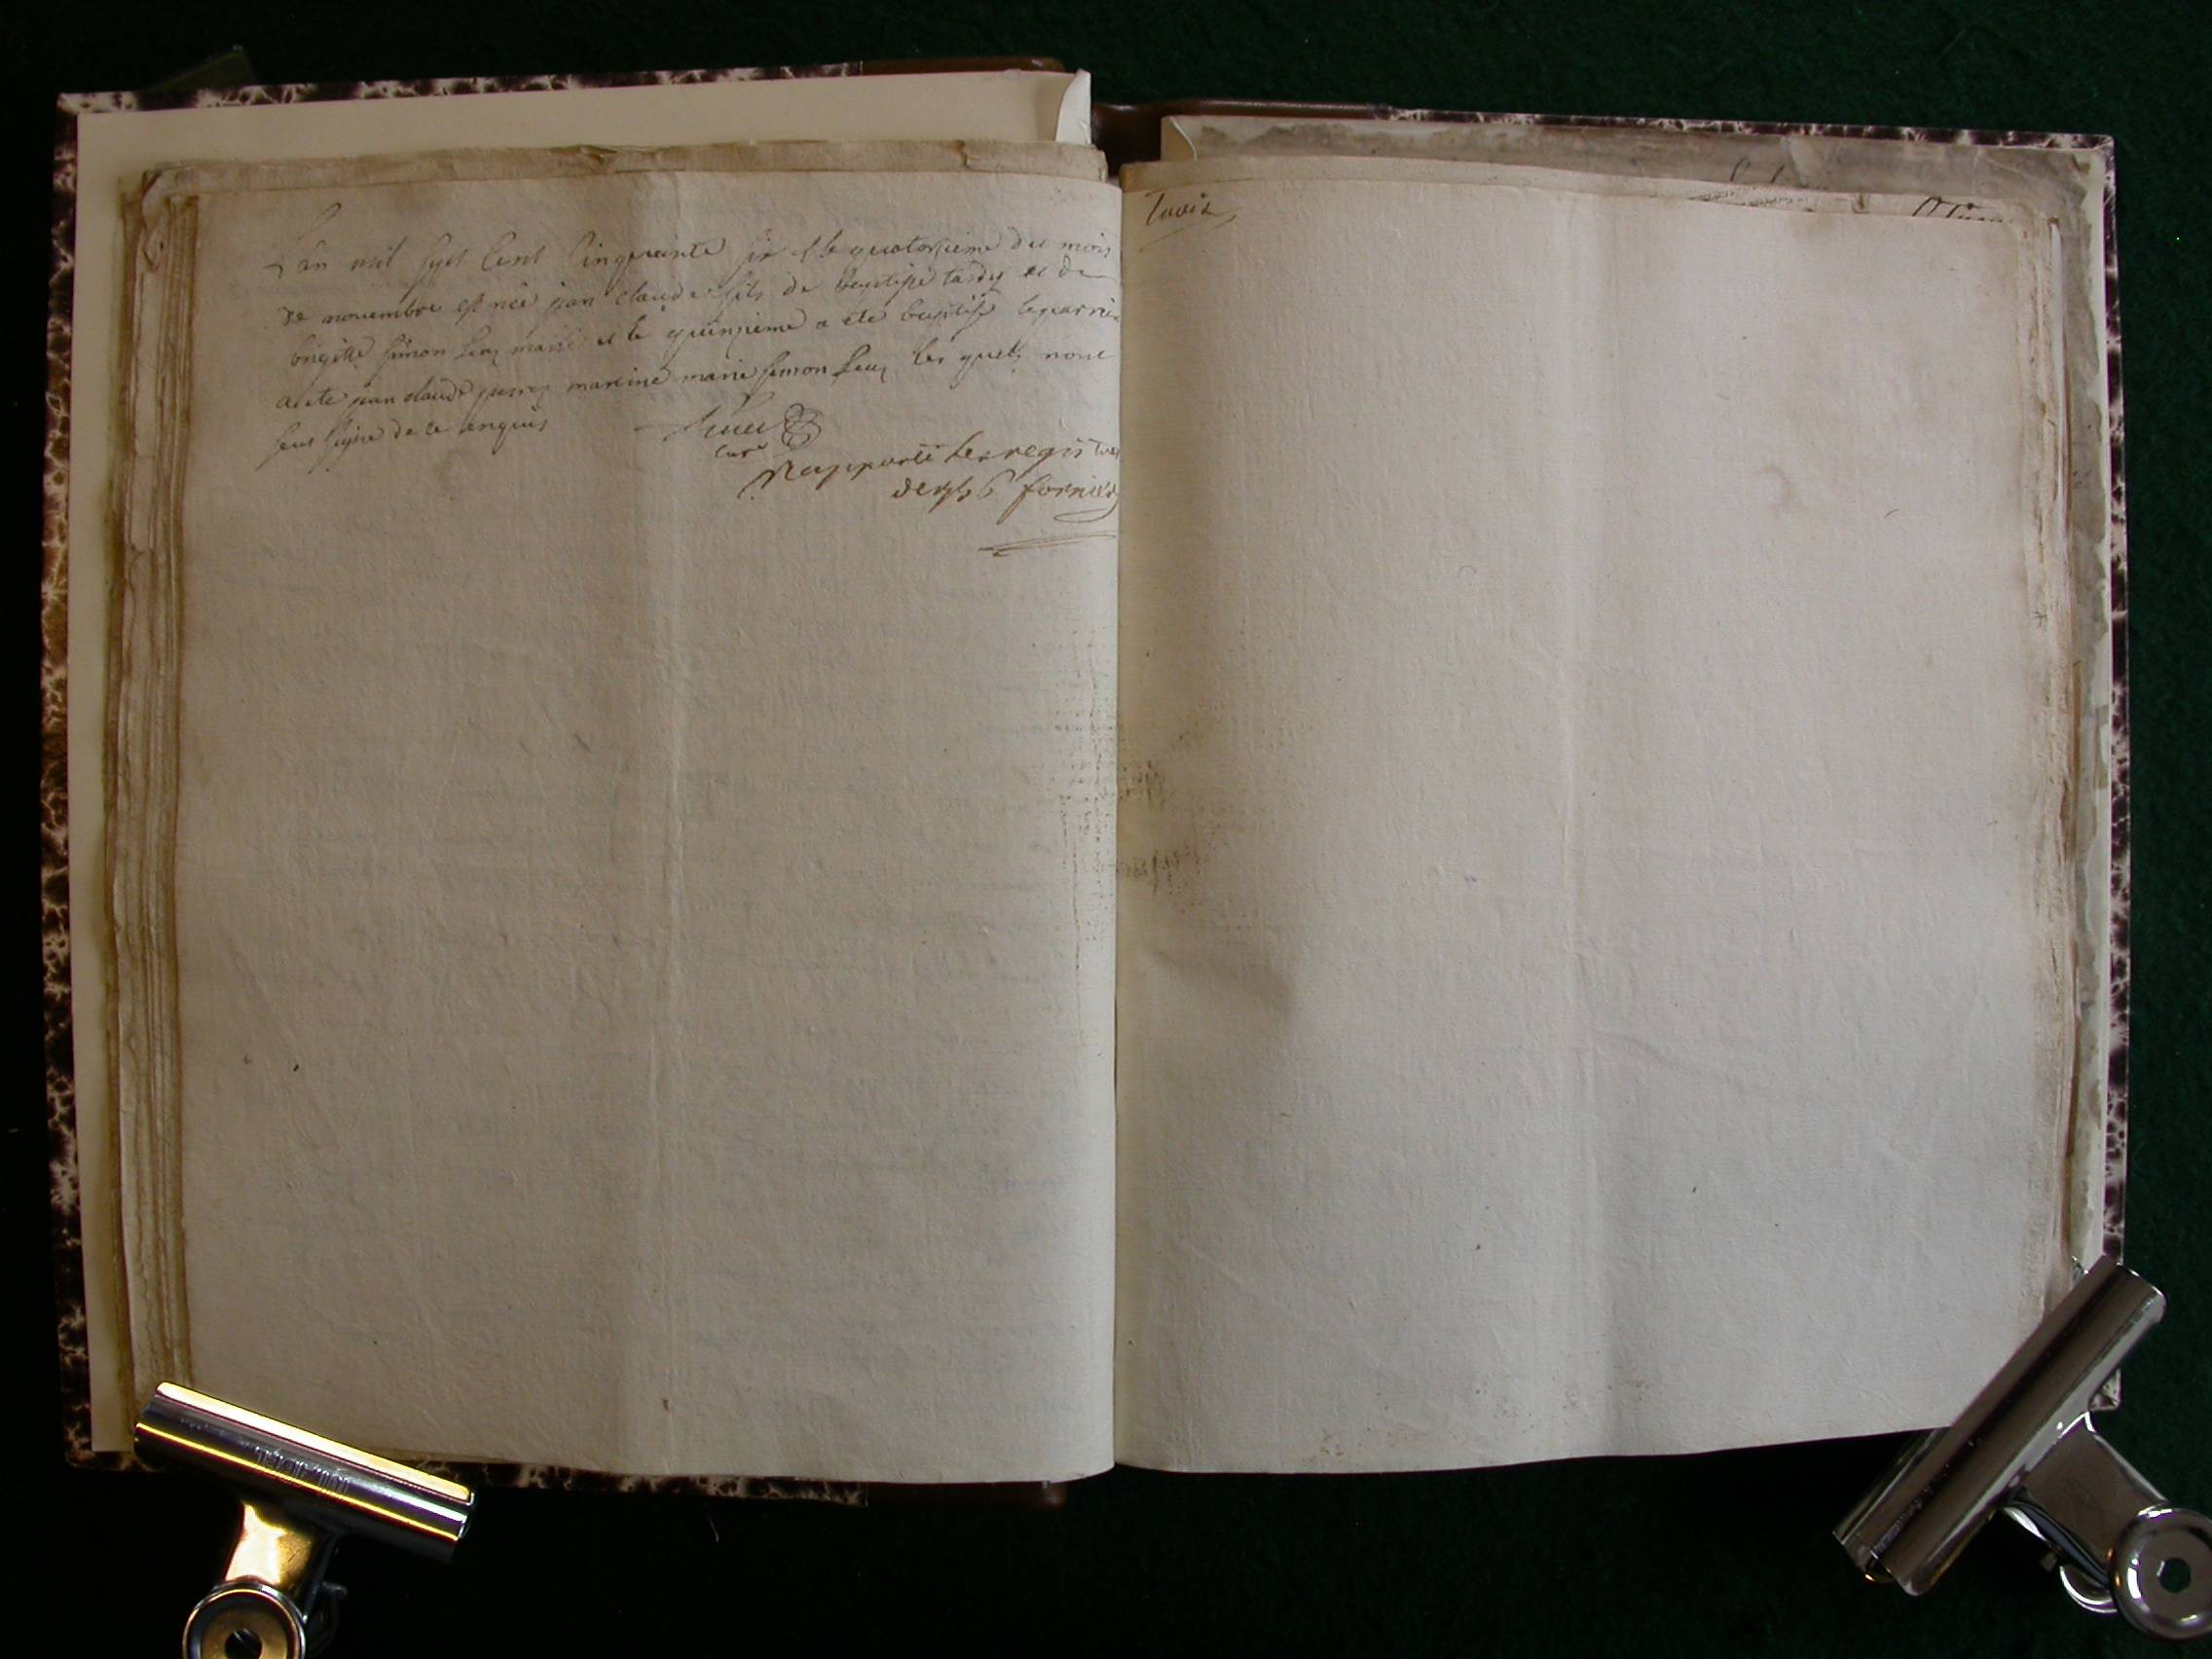 L'an mil sept cent cinquante six et le quatorsieme du mois
de novembre est née jan claude fils de baptiste tardy et de
brigitte simon sieu mariés et le quinzieme a ete baptisé le parrin
a ete jan claude mareine marie simon les quels nont
seut signe de ce enquis
curé
Rapporté les registres
de 1756 fornier